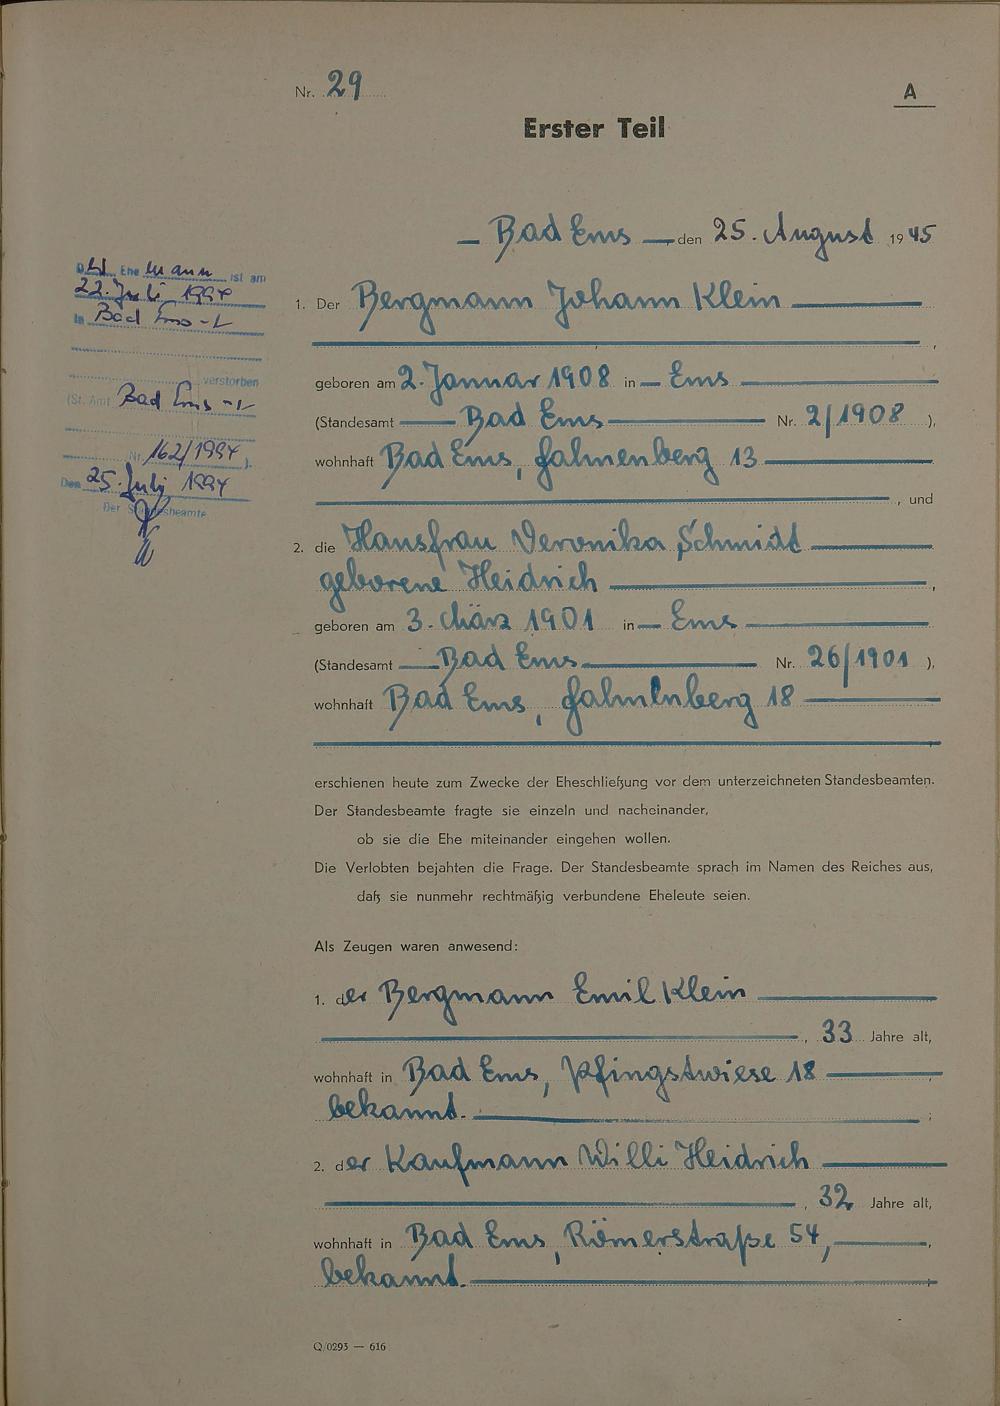 Nr. 29
A
Erster Teil
Bad Ems den 25. August 1945
Der Ehemann ist am
22. Juli 1994
in Bad Ems
verstorben
(St. Amt Bad Ems
Nr. 162/1994 ).
Den 25. Juli 1994
Der Standesbeamte
1. Der Bergmann Johann Klein
,
geboren am 2. Januar 1908 in Ems
(Standesamt Bad Ems Nr. 2/1908 ),
wohnhaft Bad Ems, Fahnenberg 13
, und
2. die Hausfrau Veronika Schmidt
geborene Heidrich ,
geboren am 3. März 1901 in Ems
(Standesamt Bad Ems Nr. 26/1901 ),
wohnhaft Bad Ems, Fahnenberg 18
erschienen heute zum Zwecke der Eheschließung vor dem unterzeichneten Standesbeamten.
Der Standesbeamte fragte sie einzeln und nacheinander,
ob sie die Ehe miteinander eingehen wollen.
Die Verlobten bejahten die Frage. Der Standesbeamte sprach im Namen des Reiches aus,
daß sie nunmehr rechtmäßig verbundene Eheleute seien.
Als Zeugen waren anwesend:
1. der Bergmann Emil Klein
, 33 Jahre alt,
wohnhaft in Bad Ems, Pfingstwiese 18
bekannt. ;
2. der Kaufmann Willi Heidrich
, 32 Jahre alt,
wohnhaft in Bad Ems, Römerstraße 54,
bekannt.
Q/0293 — 616